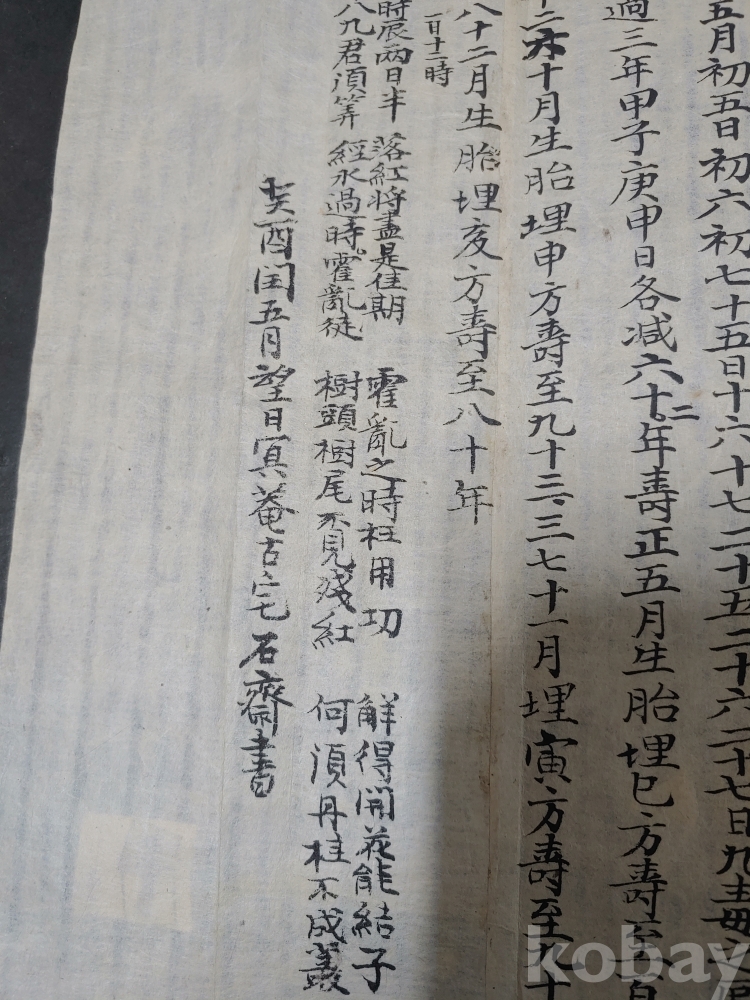 五月初五日初六初七十五日十六十七二十五二十六二十七日九毒
過三年甲子庚申日各减六十二年壽正五月生胎埋巳方壽至
十二六十月生胎埋申方壽至九十二三七十一月埋寅方壽至九十
八十二月生胎埋亥方壽至八十年
一日十二時
時辰兩日半 落紅將盡是佳期 霍亂之時枉用功 解得開花能結子
八九君須筭 經水過時霍亂徒 樹頭樹尾不見殘紅 何須丹桂不成叢
癸酉閏五月望日冥菴古宅石齋書
kobay